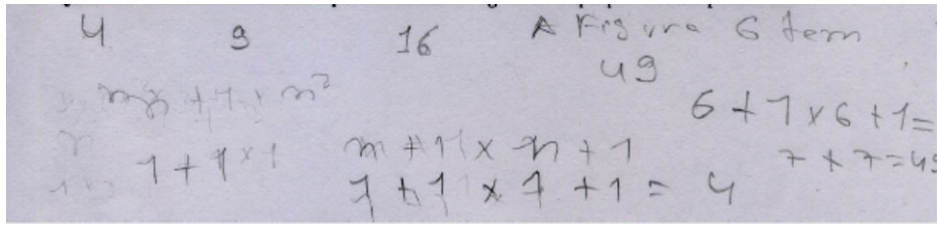 4 9 16 A Figura 6 tem
49
6 + 1 x 6 + 1 =
1 + 1 x 1 n + 1 x n + 1
7 x 7 = 49
1 + 1 x 1 + 1 = 4